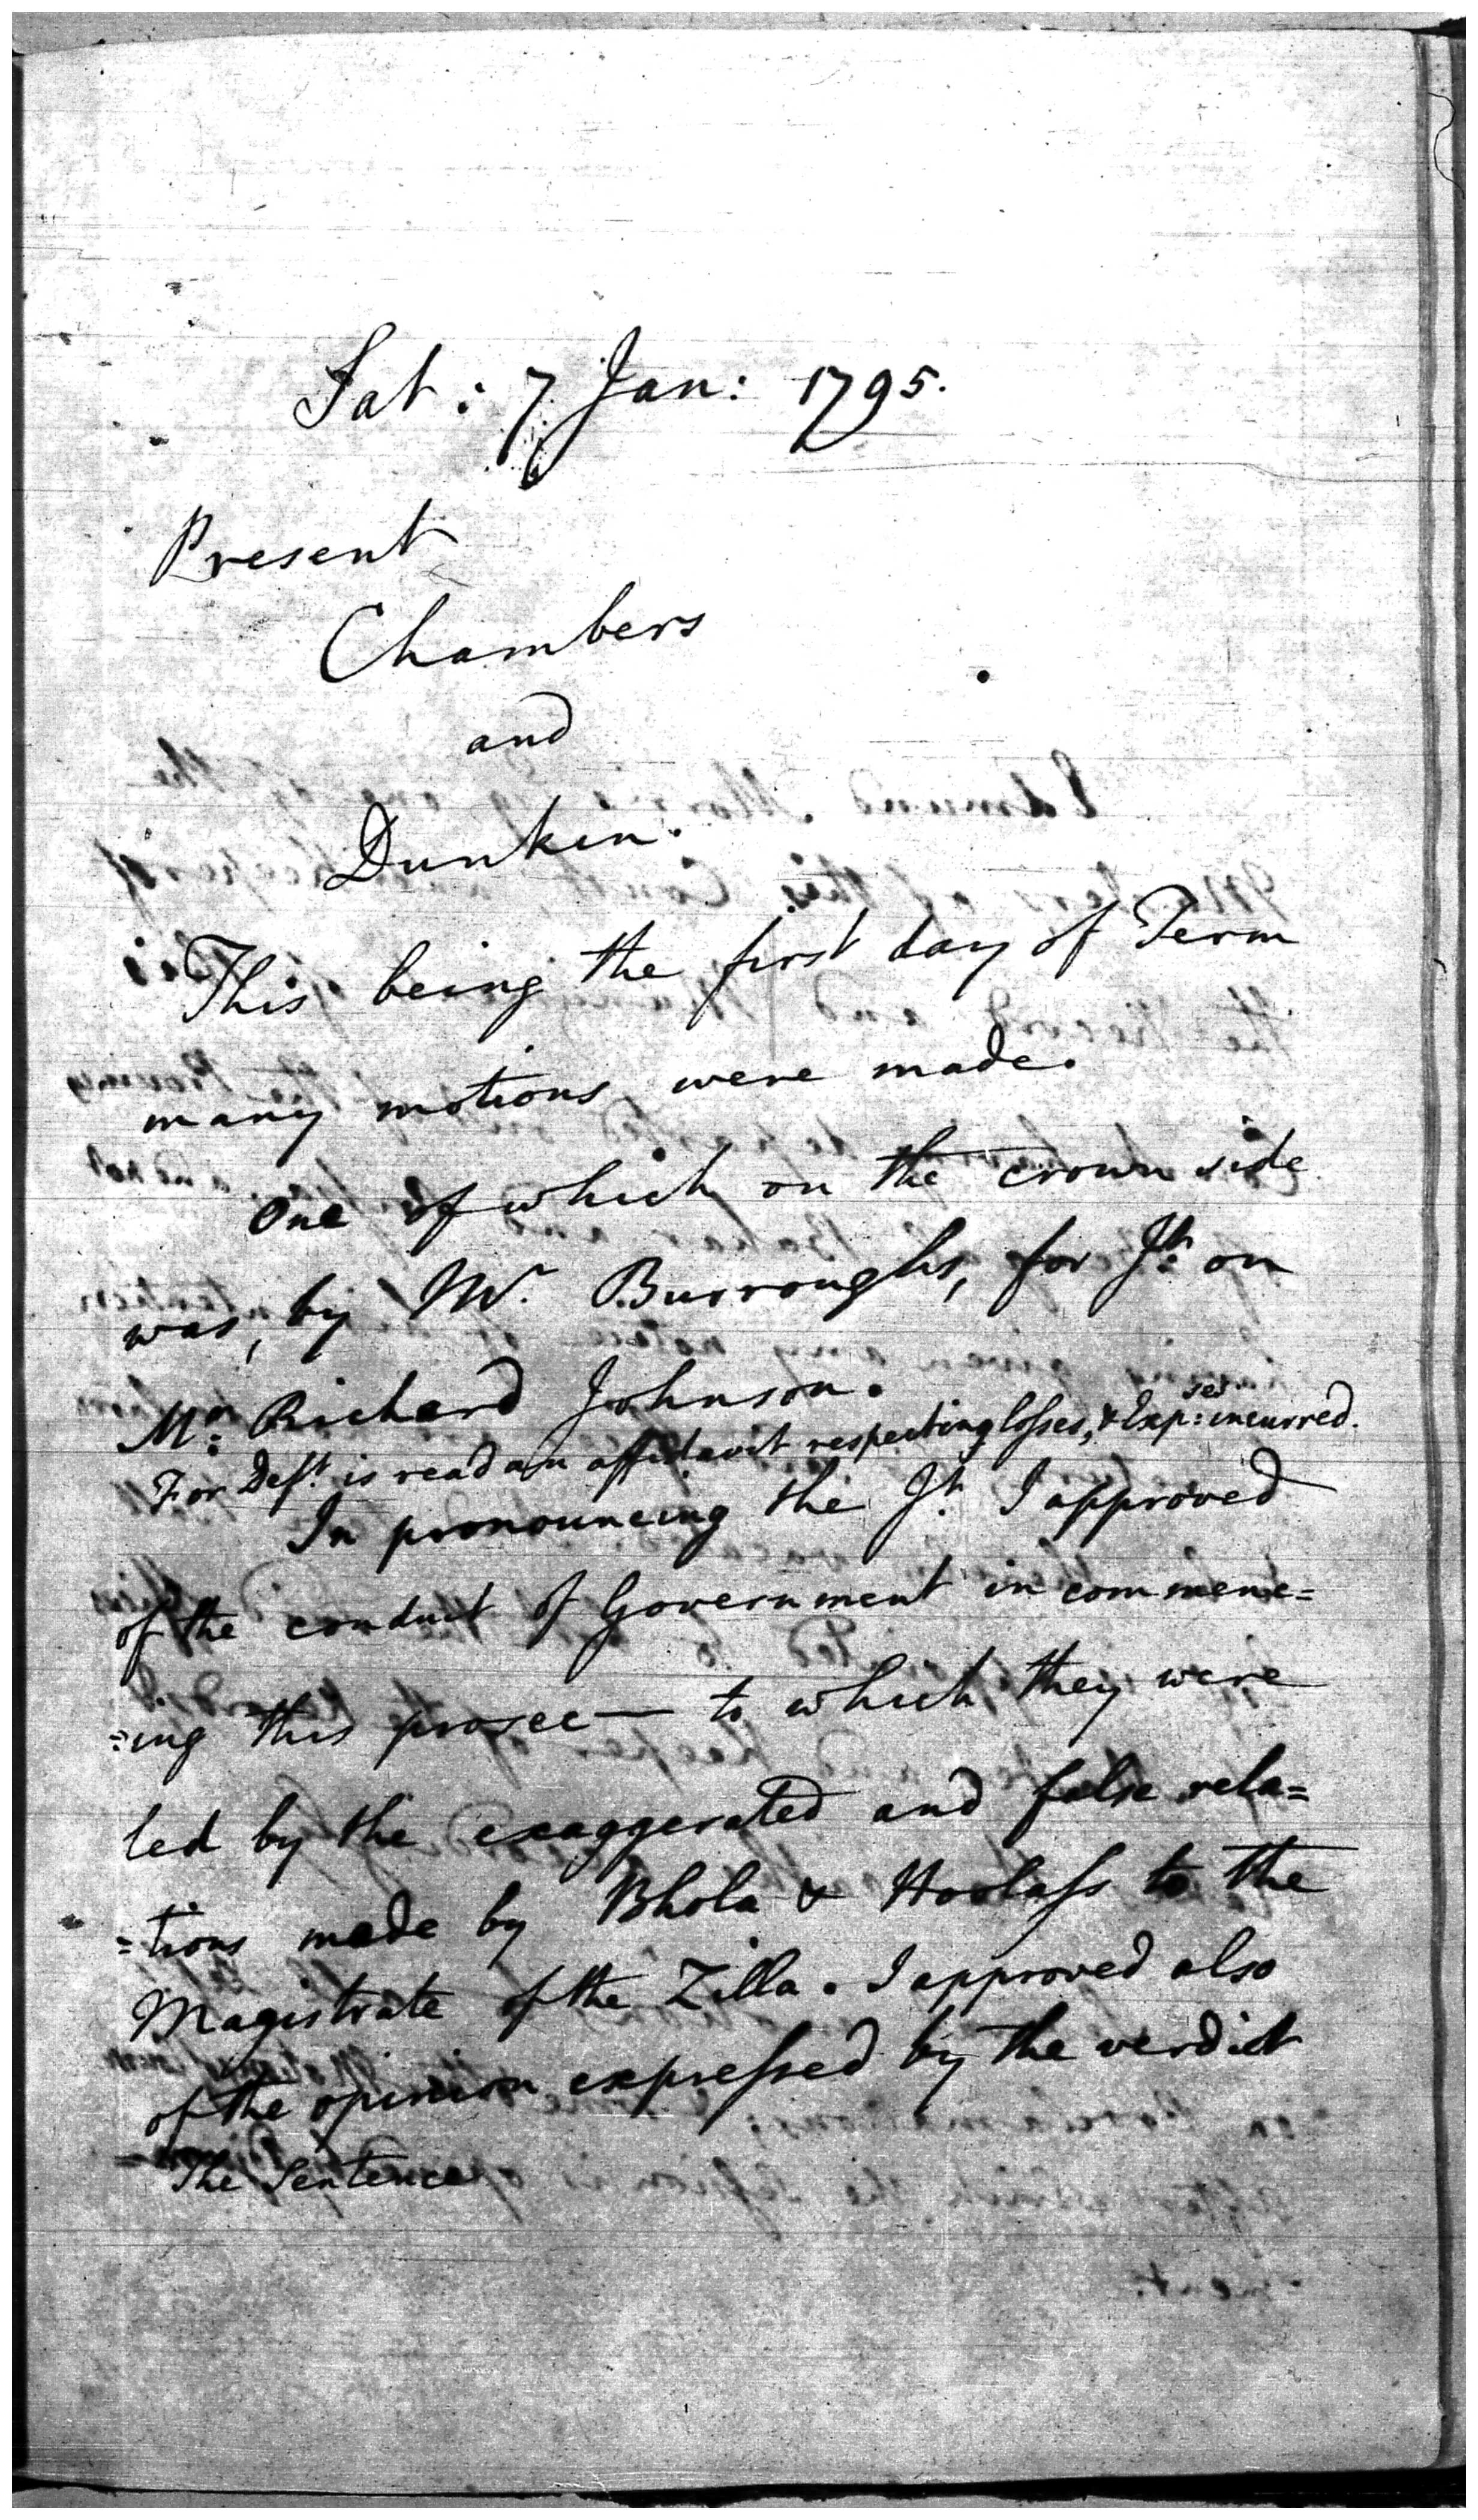 Sat: 7 Jan: 1795.
Present
Chambers
and
Dunkin.
This being the first day of Term
many motions were made.
One of which on the crown side
was, by Mr. Burroughs, for Jt. on
Mr. Richard Johnson.
For Deft. is read an affidavit respecting loſses, & Exp:ses incurred.
In pronouncing the Jt. I approved
of the conduct of Government in commenc=
=ing this prosec— to which they were
led by the exaggerated and false rela=
=tions made by Bhola & Hoolaſs to the
Magistrate of the Zilla. I approved also
of the opinion expreſsed by the verdict
The Sentence